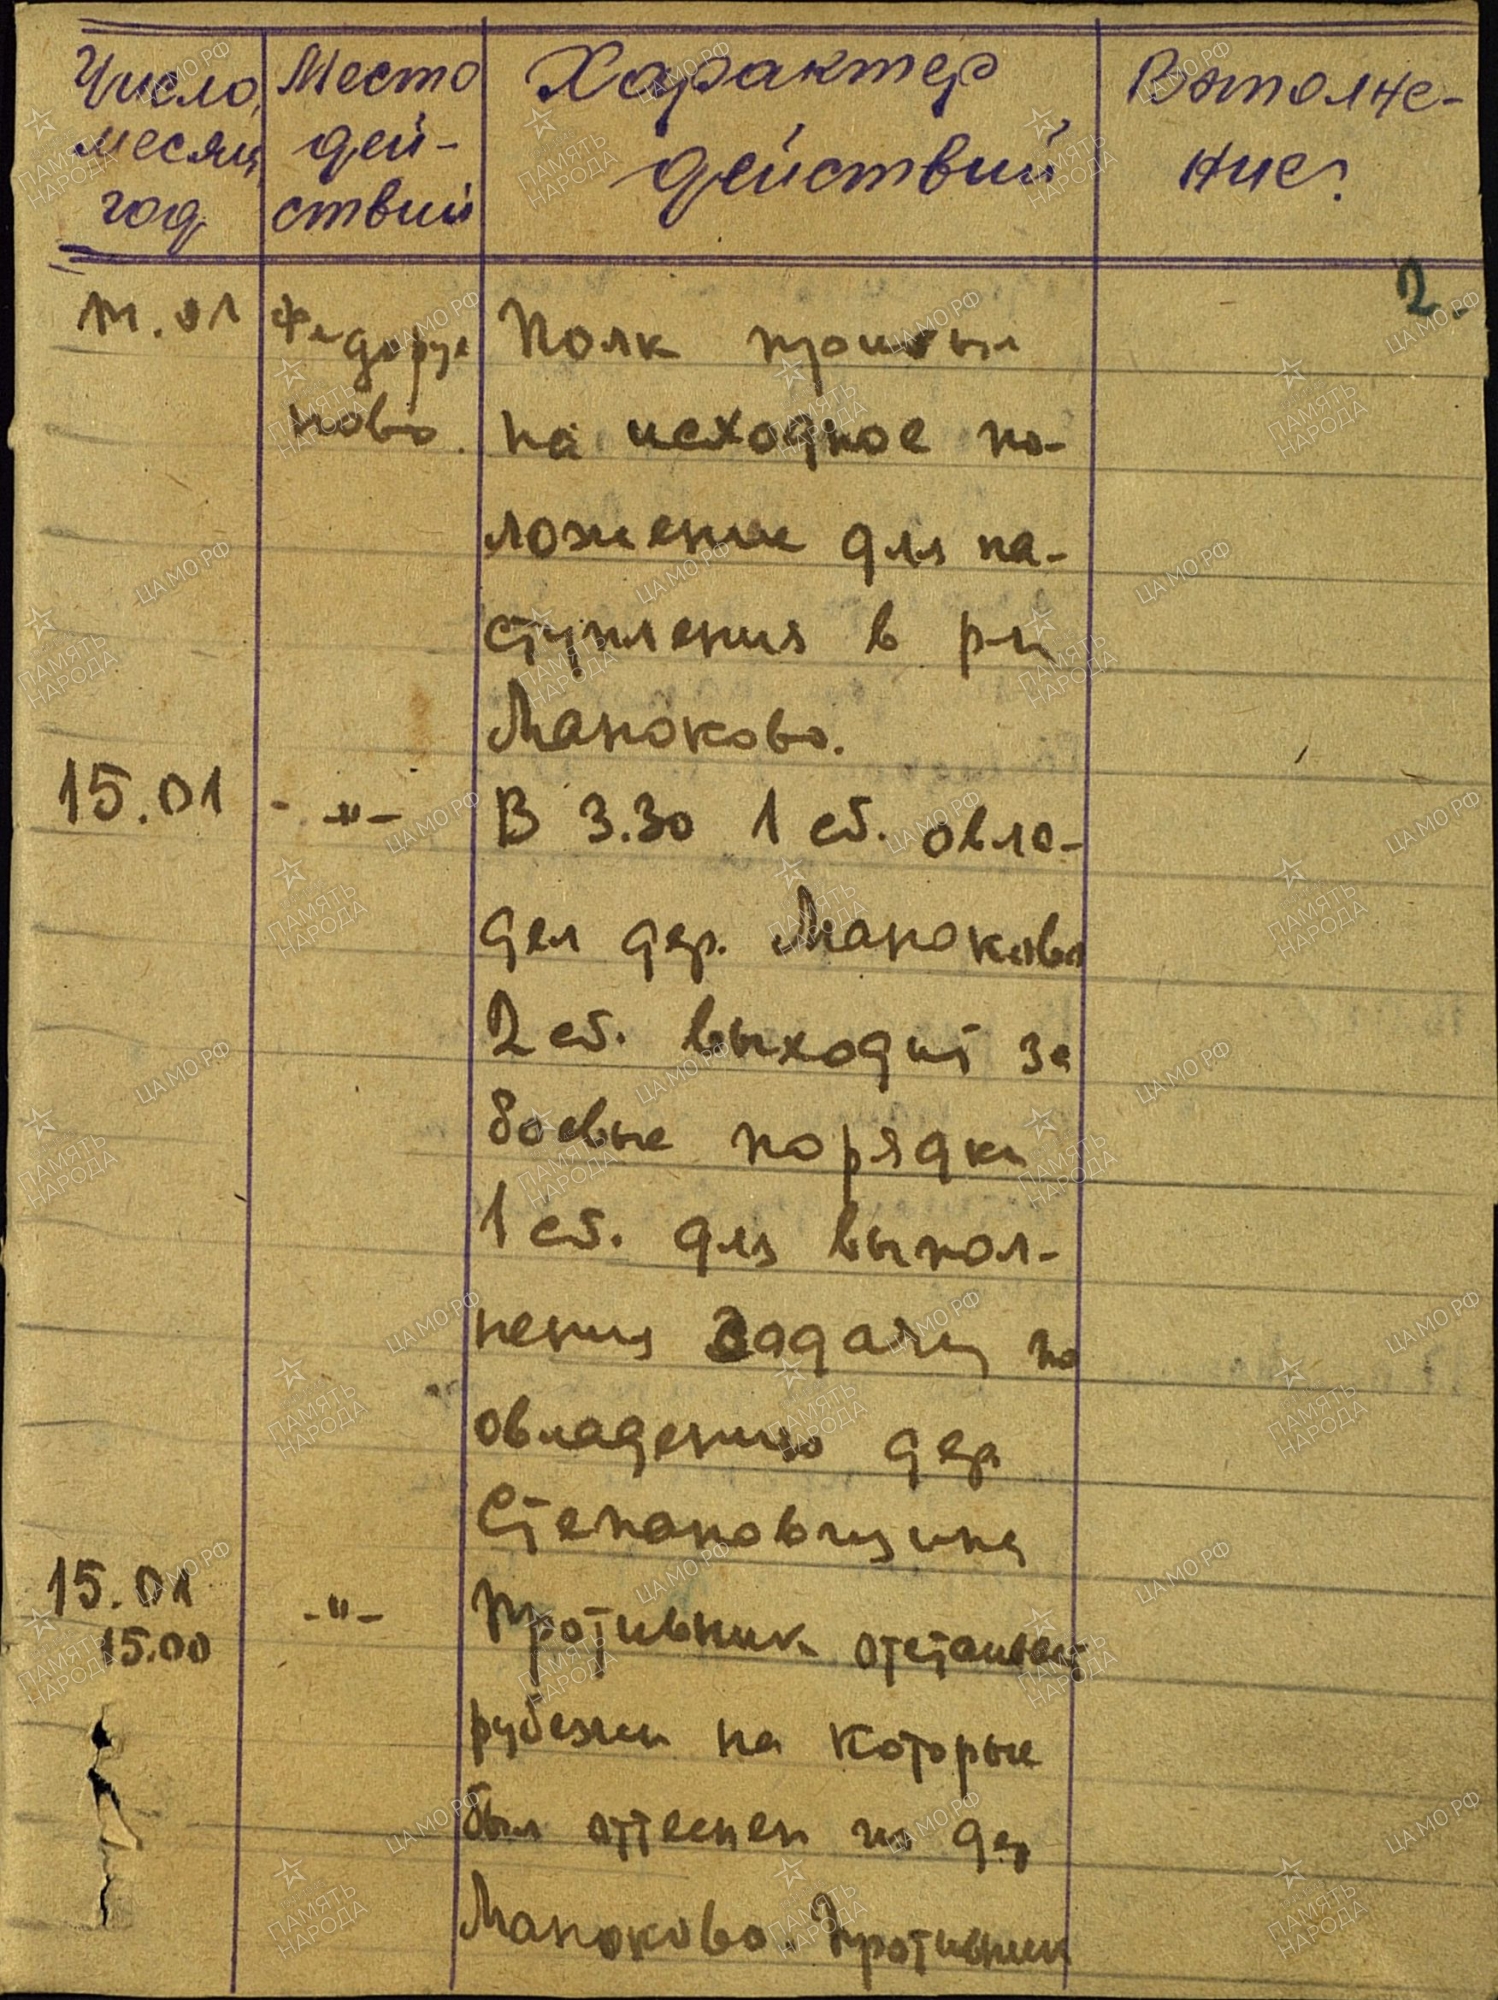 Число, месяц, год
Место дей-ствий
Характер действий
Выполне-ние.
2.
14.01
Федорув
ново.
Полк прибыл
на исходное по-
ложение для на-
ступления в р-н
Манюково.
15.01
-"-
В 3.30 1 сб. овла-
дел дер. Манюково
2 сб. выходит за
боевые порядки
1 сб. для выпол-
нения задачи по
овладению дер
Степановщина
15.01
15.00
-"-
Противник отстаивает
рубежи на которые
был оттеснен из дер
Манюково. Противник